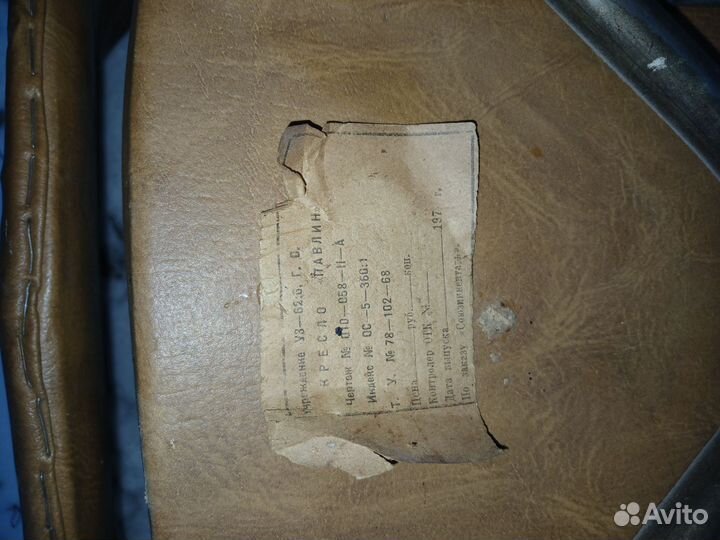 Учреждение УЗ—62/6, г. О.
КРЕСЛО „ПАВЛИН"
Чертеж № 010—058—11—А
Индекс № ОС—5—360:1
Т. У. № 78—102—68
Цена руб. коп.
Контролер ОТК №
Дата выпуска 197 г.
По заказу
Avito